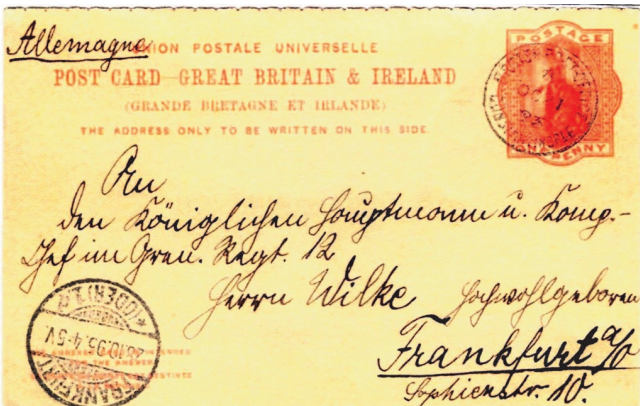 Allemagne
UNION POSTALE UNIVERSELLE
POST CARD GREAT BRITAIN & IRELAND
(GRANDE BRETAGNE ET IRLANDE)
THE ADDRESS ONLY TO BE WRITTEN ON THIS SIDE
POSTAGE
ONE PENNY
An
den Königlichen Hauptmann u. Komp.-
Chef im Gren. Regt. 12
Herrn Wilke Hochwohlgeboren
Frankfurt a/O
Sophienstr. 10.
FRANKFURT
(ODER)
THE ANNEXED CARD IS INTENDED
THE ANSWER